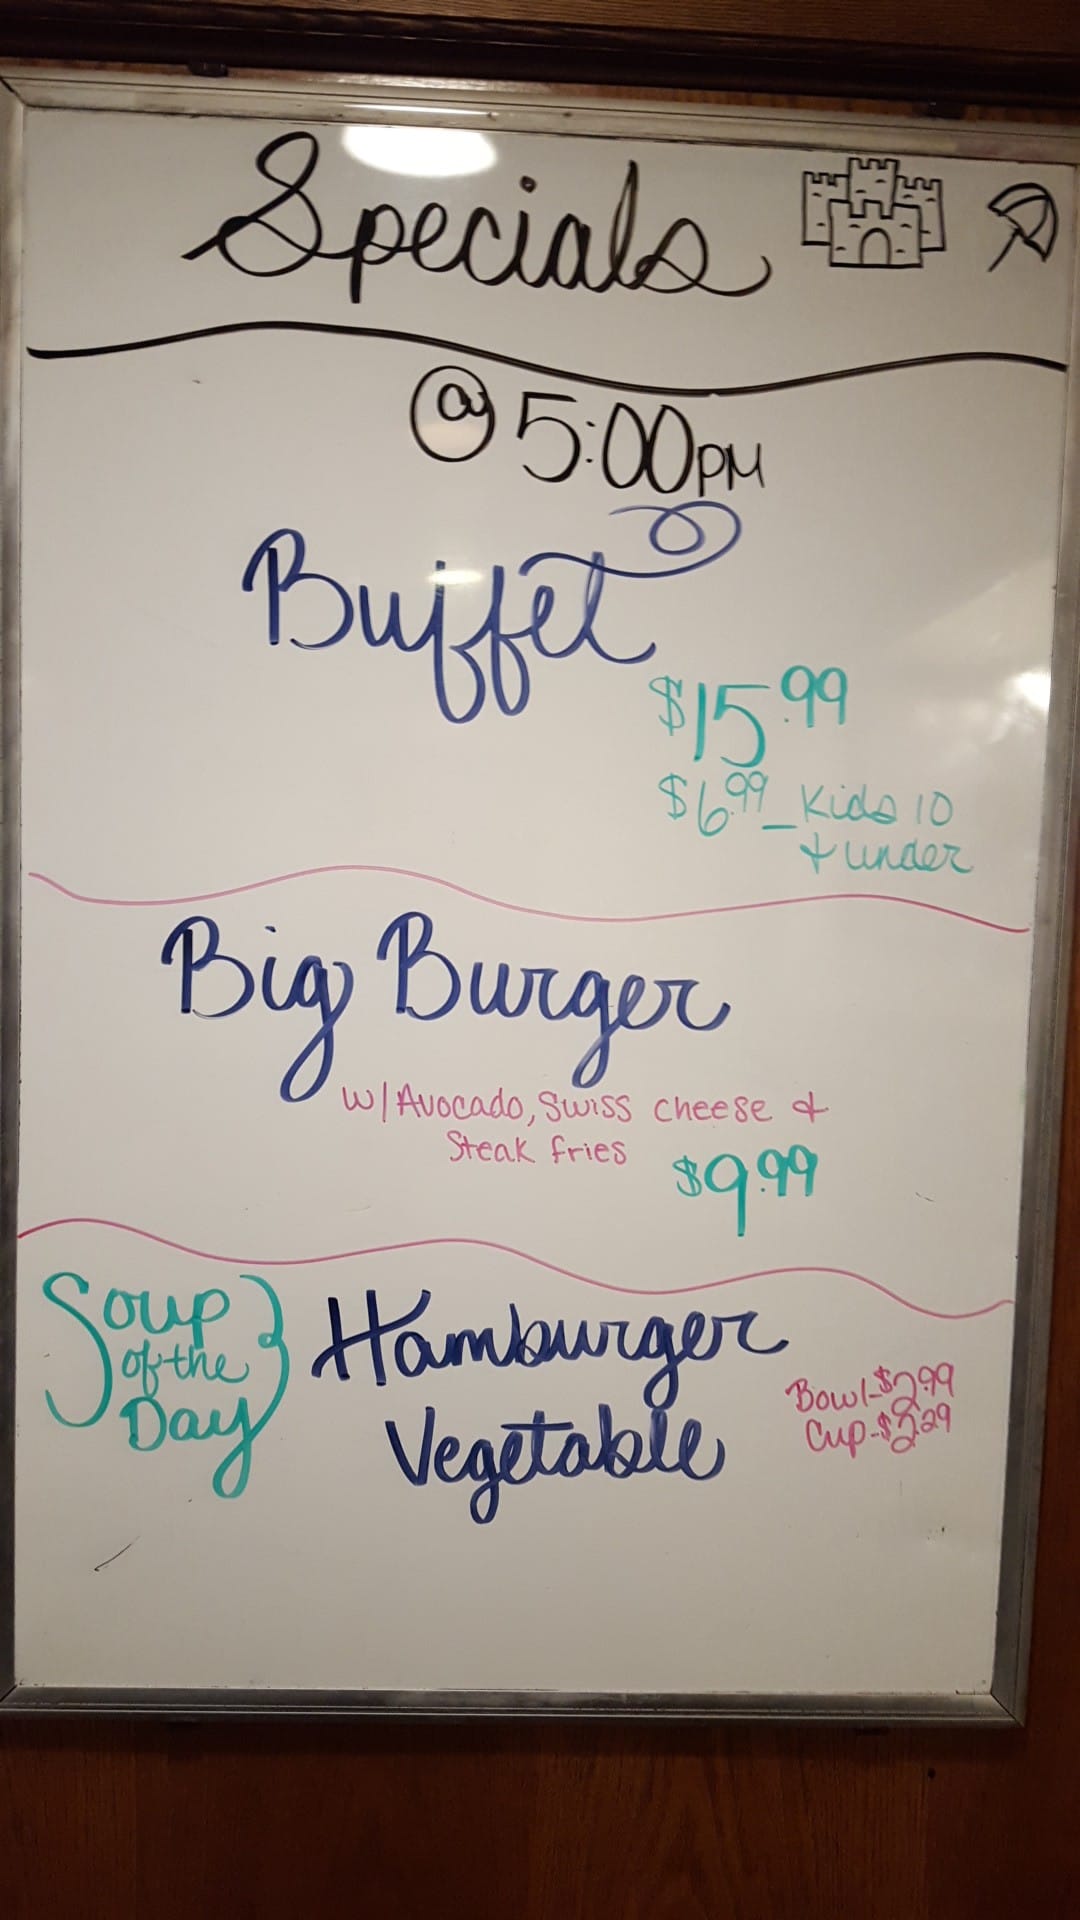 Specials
@ 5:00PM
Buffet
$15.99
$6.99 - Kids 10
& under
Big Burger
w/ Avocado, Swiss cheese &
Steak fries
$9.99
Soup
of the
Day
Hamburger
Vegetable
Bowl-$2.99
Cup-$2.29